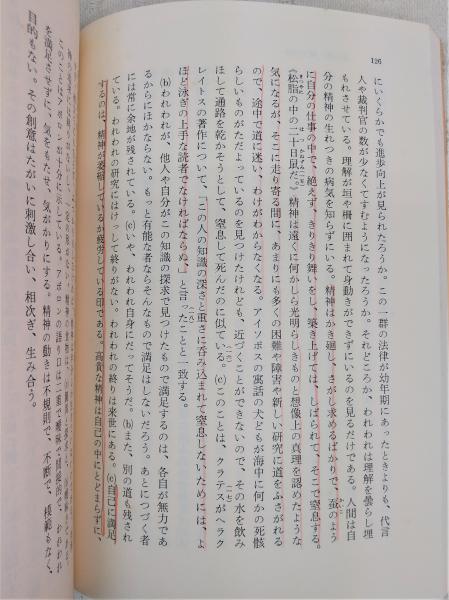 126
にいくらかでも進歩向上が見られたろうか。この一群の法律が幼年期にあったときよりも、代言
人や裁判官の数が少なくてすむようになったろうか。それどころか、われわれは理解を曇らし埋
もれさせている。理解が垣や柵に囲まれて身動きができずにいるのを見るだけである。人間は自
分の精神の生れつきの病気を知らずにいる。精神はかき廻し、さがし求めるばかりで、蚕のよう
に自分の仕事の中で、絶えず、きりきり舞いをし、築き上げては、しばられて、そこで窒息する。
《松脂の中の二十日鼠だ。》精神は遠くに何かしら光明らしきものと想像上の真理を認めたような
気になるが、そこに走り寄る間に、あまりにも多くの困難や障害や新しい研究に道をふさがれる
ので、途中で道に迷い、わけがわからなくなる。アイソポスの寓話の犬どもが海中に何かの死骸
らしいものがただよっているのを見つけたけれども、近づくことができないので、その水を飲み
ほして通路を乾かそうとして、窒息して死んだのに似ている。(c)このことは、クラテスがヘラク
レイトスの著作について、「この人の知識の深さと重さに呑み込まれて窒息しないためには、よ
ほど泳ぎの上手な読者でなければならぬ」と言ったことと一致する。
(b)われわれが、他人や自分がこの知識の探求で見つけたもので満足するのは、各自が無力であ
るからにほかならない。もっと有能な者ならそんなもので満足はしないだろう。あとにつづく者
には常に余地が残されている。(c)いや、われわれ自身にだってそうだ。(b)また、別の道も残され
ている。われわれの研究にはけっして終りがない。われわれの終りは来世にある。(c)自己に満足
するのは、精神が萎縮しているか疲労している印である。高貴な精神は自己の中にとどまらずに、
を満足させずに、気をもたせ、気がかりにする。精神の動きは不規則で、不断で、模範もなく、
目的もない。その創意はたがいに刺激し合い、相次ぎ、生み合う。